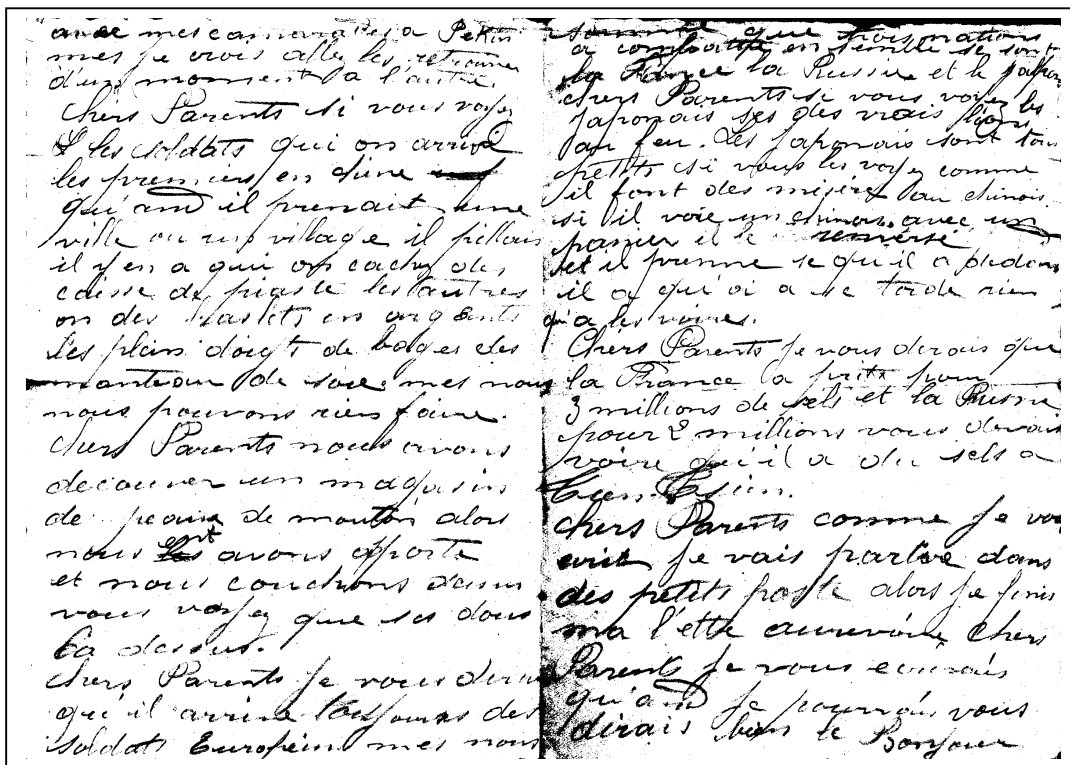 avec mes camarades a Pekin
mes je crois allé les retrouver
d'un moment a l'autre.
Chers Parents si vous voyez
les soldats qui on arrivé
les premiers en chine
qu'and il prenait une
ville ou un village il pillais
il y en a qui on cachez des
caisse de piastre les autres
on des en argents
les plein doigts de bages des
manteau de soie mes nous
nous pouvons rien faire.
Chers Parents nous avons
decouver un magasin
de peaux de mouton alors
nous ent avons apporte
et nous couchons dessus
vous voyez que ses dous
la dessus.
Chers Parents je vous dirais
qu'il arrive toujours des
soldats Européin mes nous
somme que trois nations
a combattre en semble se sont
la France la Russie et le japon
chers Parents si vous voyez les
japonais ses des vrais lions
au feu. Les japonais sont tous
petits si vous les voyez comme
il font des misère au chinois
si il voie un chinois avec un
panier il le renverse
et il prenne se qu'il a dedans
il a qu'oi a se torde rien
qu'a les voires.
Chers Parents je vous dirais que
la France la prits pour
3 millions de sels et la Russie
pour 2 millions vous devais
voire qui il a du sels a
Tien-Tsien.
Chers Parents comme je vous
ecrit je vais partire dans
des petits poste alors je finis
ma l'ettre aurevoire Chers
Parents je vous ecrirais
qu'and je pourrais vous
dirais bien le Bonjour